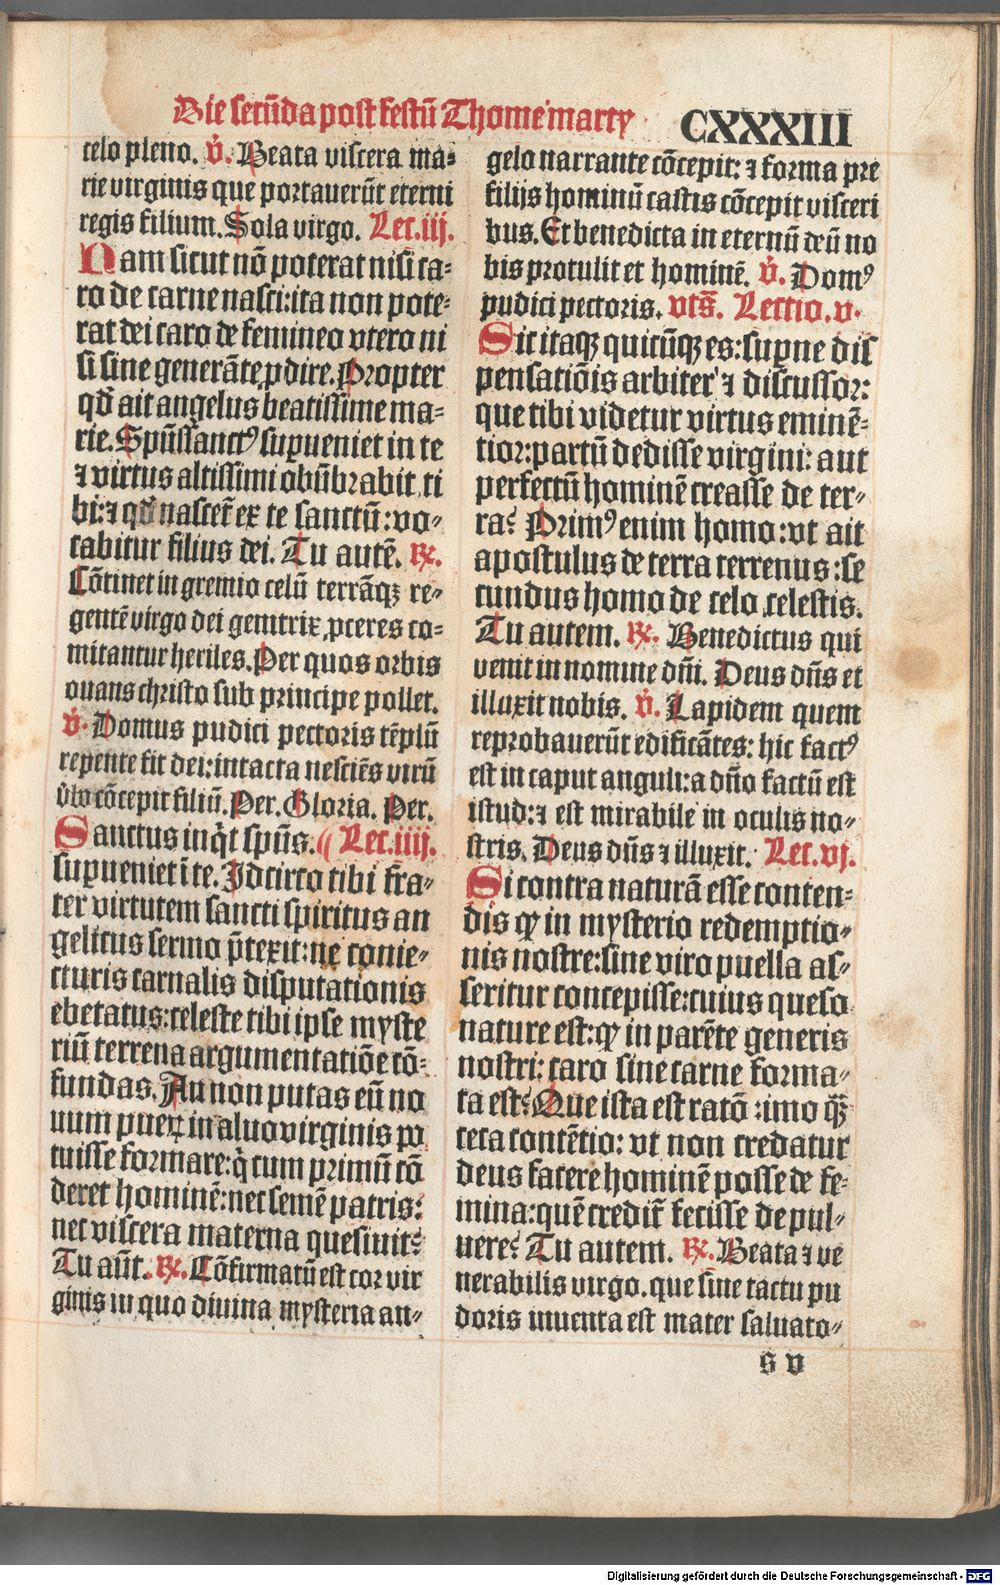 Die secūda post festū Thome marty CXXXIII
celo pleno. ꝟ. Beata viscera ma⸗
rie virginis que portauerūt eterni
regis filium. Sola virgo. Lec.iij.
Nam sicut nō poterat nisi ca⸗
ro de carne nasci:ita non pote⸗
rat dei caro de femineo vtero ni
si sine generāte ꝓdire. Propter
qđ ait angelus beatissime ma⸗
rie. Spūssanctꝰ suꝑueniet in te
⁊ virtus altissimi obūbrabit ti
bi:⁊ qđ nascet̄ ex te sanctū:vo⸗
cabitur filius dei. Tu autē. ℞.
Cōtinet in gremio celū terrāqꝫ re⸗
gentē virgo dei genitrix ,ꝓceres co⸗
mitantur heriles. Per quos orbis
ouans christo sub principe pollet.
ꝟ. Domus pudici pectoris tēplū
repente fit dei:intacta nesciēs virū
v̄bo cōcepit filiū. Per. Gloria. Per.
Sanctus inqͥt spūs. Lec.iiij.
suꝑueniet ī te. Idcirco tibi fra⸗
ter virtutem sancti spiritus an
gelicus sermo p̄texit:ne conie⸗
cturis carnalis disputationis
ebetatus:celeste tibi ipse myste
riū terrena argumentatiōe cō⸗
fundas. An non putas eū no
uum pueꝝ in aluo virginis po
tuisse formare:qͥ cum primū cō
deret hominē:nec semē patris:
nec viscera materna quesiuit?
Tu aūt. ℞. Cōfirmatū est cor vir
ginis in quo diuina mysteria an⸗
gelo narrante cōcepit: ⁊ forma pre
filijs hominū castis cōcepit visceri
bus. Et benedicta in eternū deū no
bis protulit et hominē. ꝟ. Domꝰ
pudici pectoris. vts̄. Lectio.v.
Sic itaqꝫ quicūqꝫ es:suꝑne dis
pensatiōis arbiter ⁊ discussor:
que tibi videtur virtus eminē⸗
tior:partū dedisse virgini: aut
perfectū hominē creasse de ter⸗
ra? Primꝰ enim homo:vt ait
apostulus de terra terrenus:se
cundus homo de celo ,celestis.
Tu autem. ℞. Benedictus qui
venit in nomine dn̄i. Deus dn̄s et
illuxit nobis. ꝟ. Lapidem quem
reprobauerūt edificātes: hic factꝰ
est in caput anguli:a dn̄o factū est
istud:⁊ est mirabile in oculis no⸗
stris. Deus dn̄s ⁊ illuxit. Lec.vj.
Si contra naturā esse conten⸗
dis ꝙ in mysterio redemptio⸗
nis nostre:sine viro puella as⸗
seritur concepisse:cuius queso
nature est:ꝙ in parēte generis
nostri: caro sine carne forma⸗
ta est? Que ista est ratō :imo q̄ꝫ
ceca contētio: vt non credatur
deus facere hominē posse de fe⸗
mina:quē credit̄ fecisse de pul⸗
uere? Tu autem. ℞. Beata ⁊ ve
nerabilis virgo.que sine tactu pu
doris inuenta est mater saluato⸗
s v
Digitalisierung gefördert durch die Deutsche Forschungsgemeinschaft - DFG